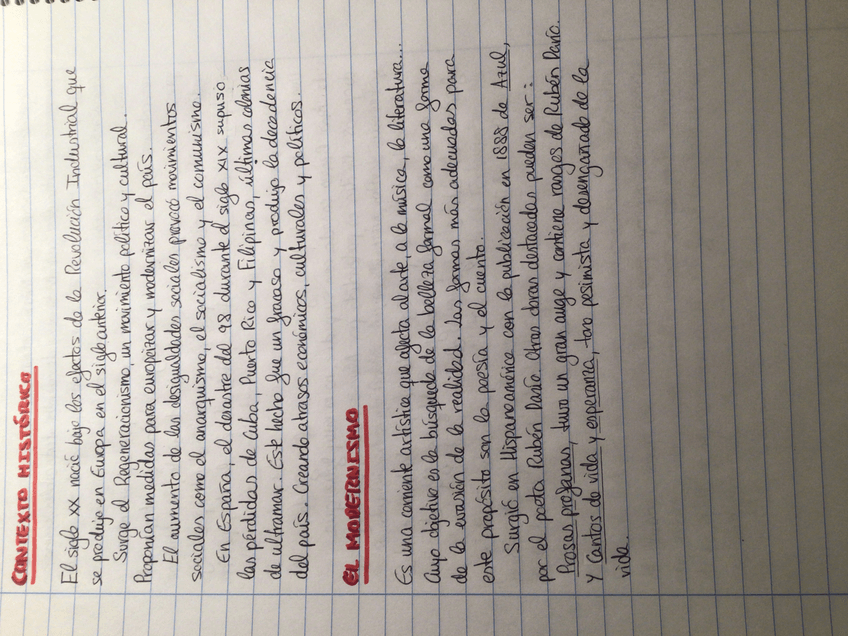 CONTEXTO HISTÓRICO
El siglo XX nació bajo los efectos de la Revolución Industrial que
se produjo en Europa en el siglo anterior.
Surge el Regeneracionismo, un movimiento político y cultural.
Proponían medidas para europeizar y modernizar el país.
El aumento de las desigualdades sociales provocó movimientos
sociales como el anarquismo, el socialismo y el comunismo.
En España, el desastre del 98 durante el siglo XIX supuso
las pérdidas de Cuba, Puerto Rico y Filipinas, últimas colonias
de ultramar. Este hecho fue un fracaso y produjo la decadencia
del país. Creando atrasos económicos, culturales y políticos.
EL MODERNISMO
Es una corriente artística que afecta al arte, a la música, la literatura...
Cuyo objetivo es la búsqueda de la belleza formal como una forma
de la evasión de la realidad. Las formas más adecuadas para
este propósito son la poesía y el cuento.
Surgió en Hispanoamérica con la publicación en 1888 de Azul,
por el poeta Rubén Darío. Otras obras destacadas pueden ser:
Prosas profanas, tuvo un gran auge y contiene rasgos de Rubén Darío.
y Cantos de vida y esperanza, tono pesimista y desengañado de la
vida.